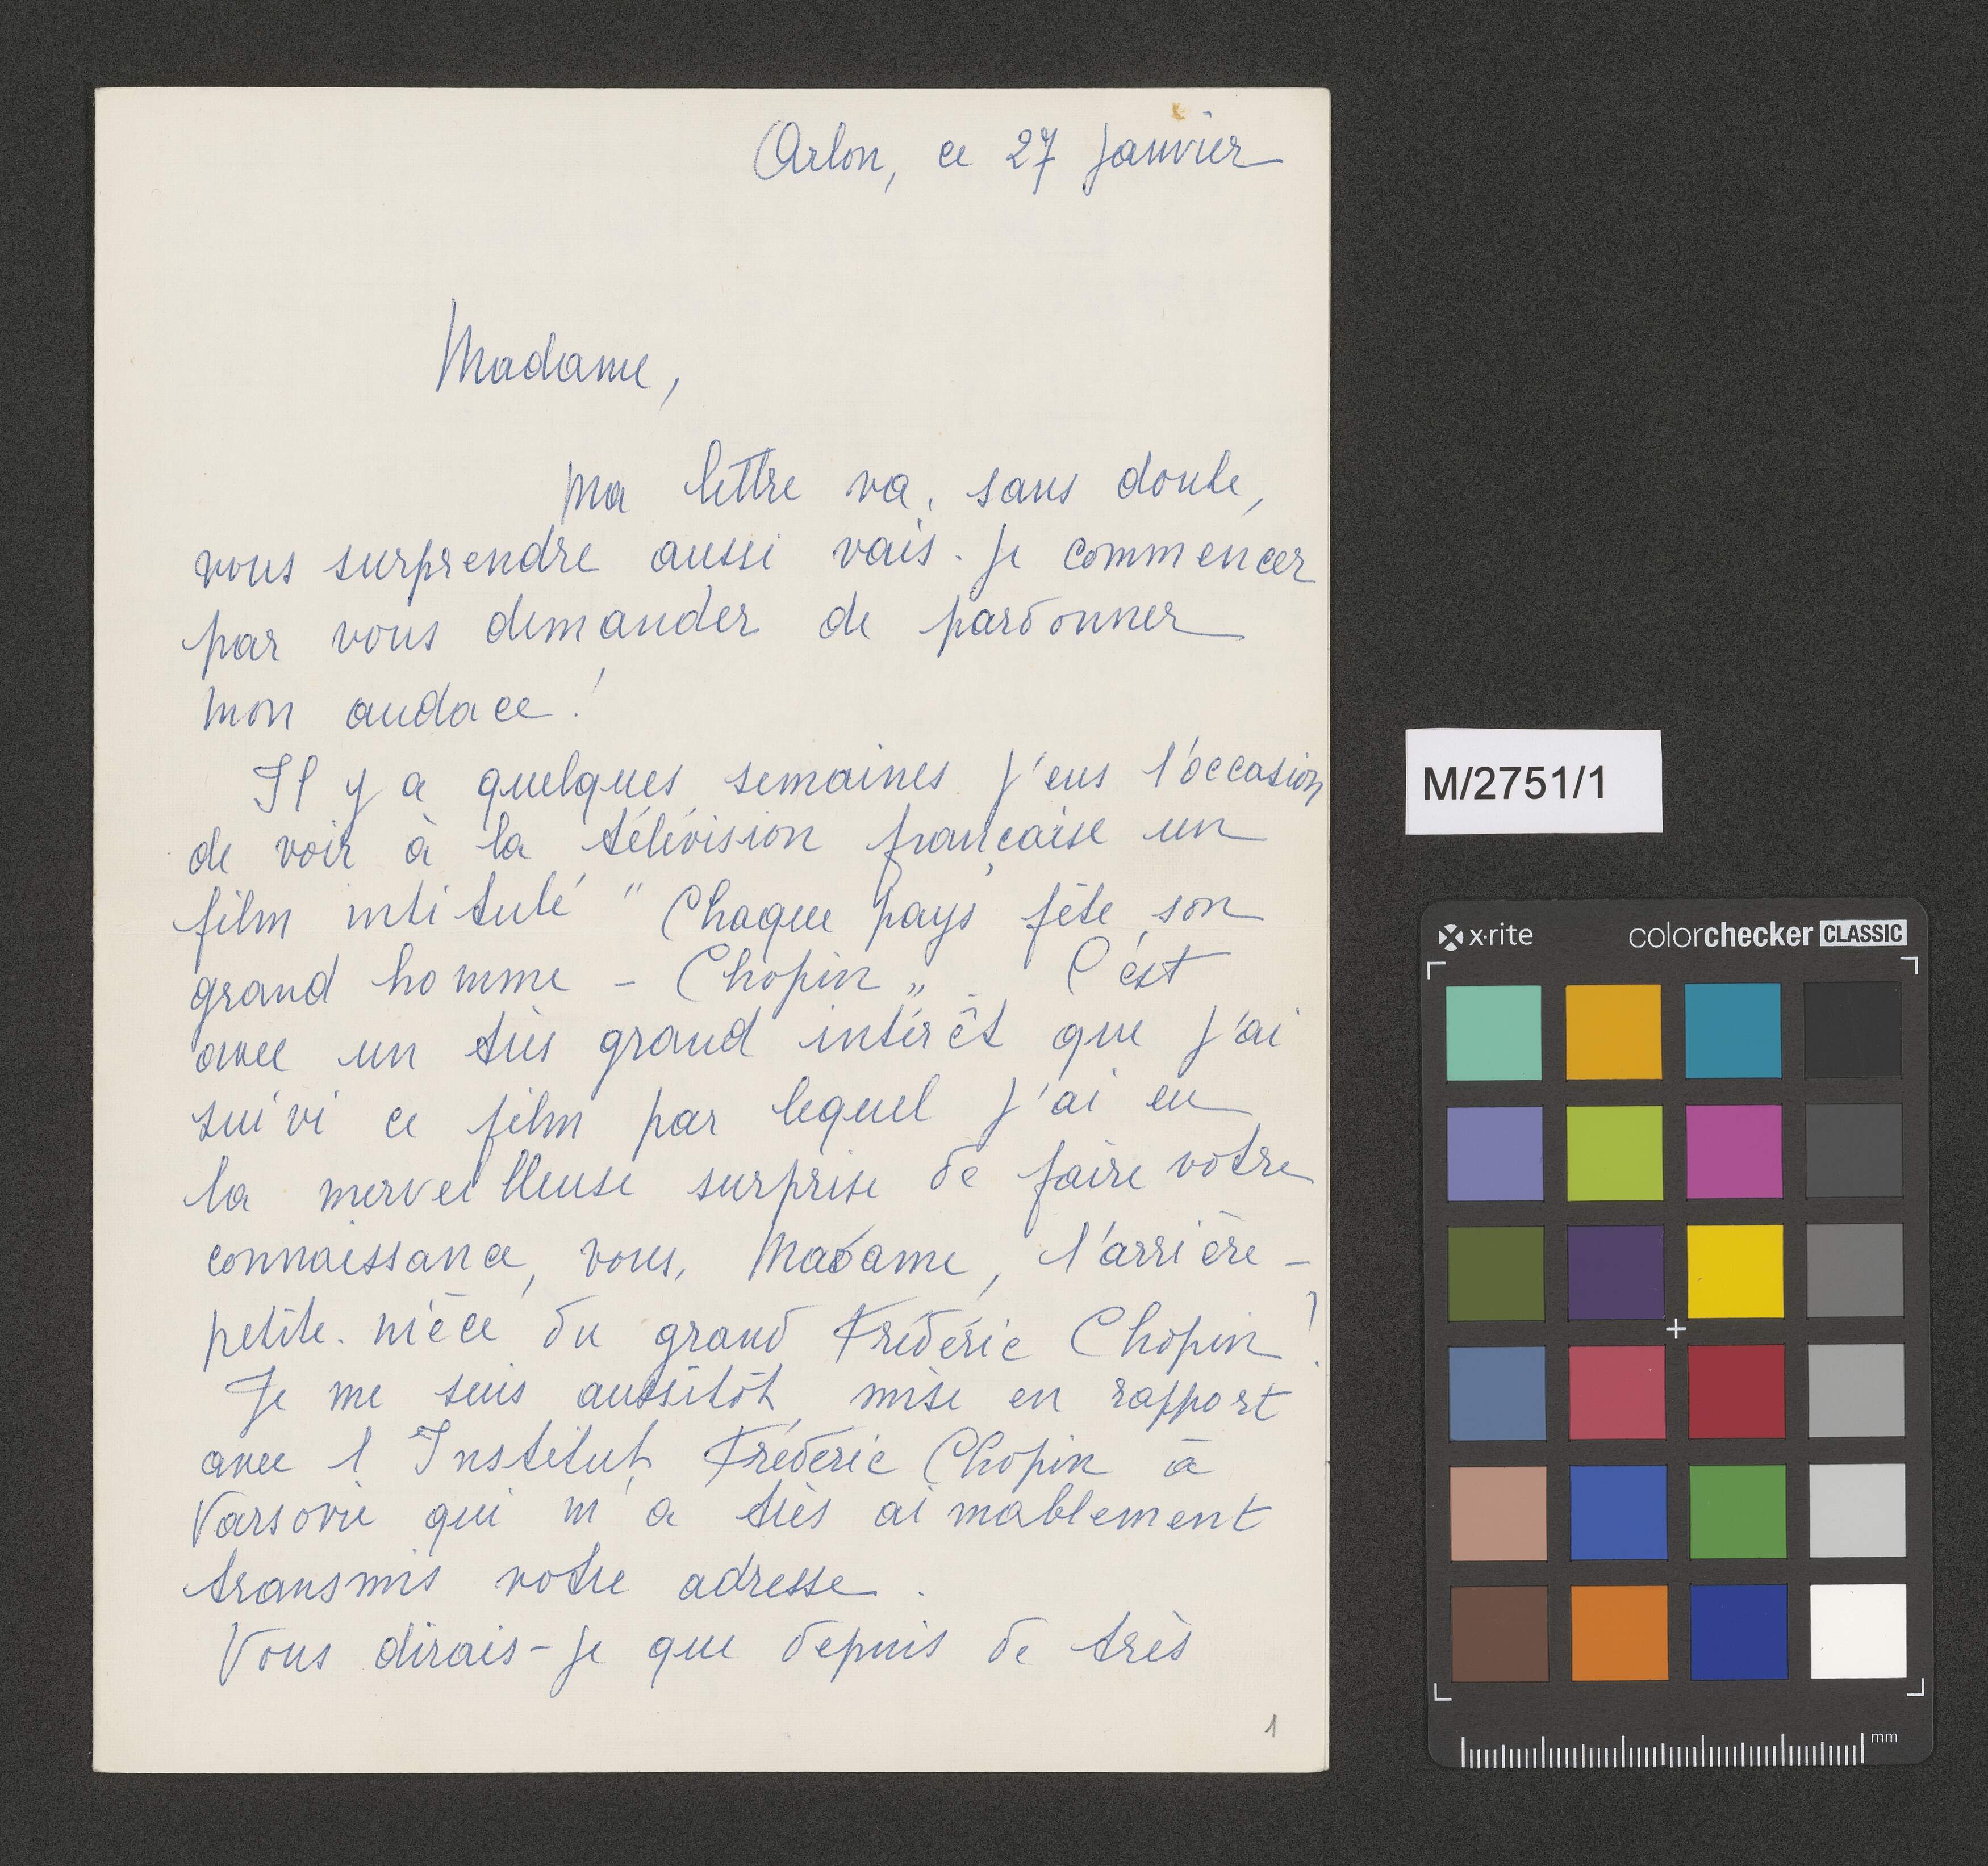 Arlon, ce 27 janvier
Madame,
Ma lettre va, sans doute,
vous surprendre aussi vais-je commencer
par vous demander de pardonner
mon audace!
Il y a quelques semaines j'eus l'occasion
de voir à la télévision française un
film intitulé "Chaque pays fête son
grand homme - Chopin". C'est
avec un très grand intérêt que j'ai
suivi ce film par lequel j'ai eu
la merveilleuse surprise de faire votre
connaissance, vous, Madame, l'arrière-
petite-nièce du grand Frédéric Chopin!
Je me suis aussitôt mise en rapport
avec l'Institut Frédéric Chopin à
Varsovie qui m'a très aimablement
transmis votre adresse.
Vous dirais-je que depuis de très
1
M/2751/1
x-rite
colorchecker CLASSIC
mm